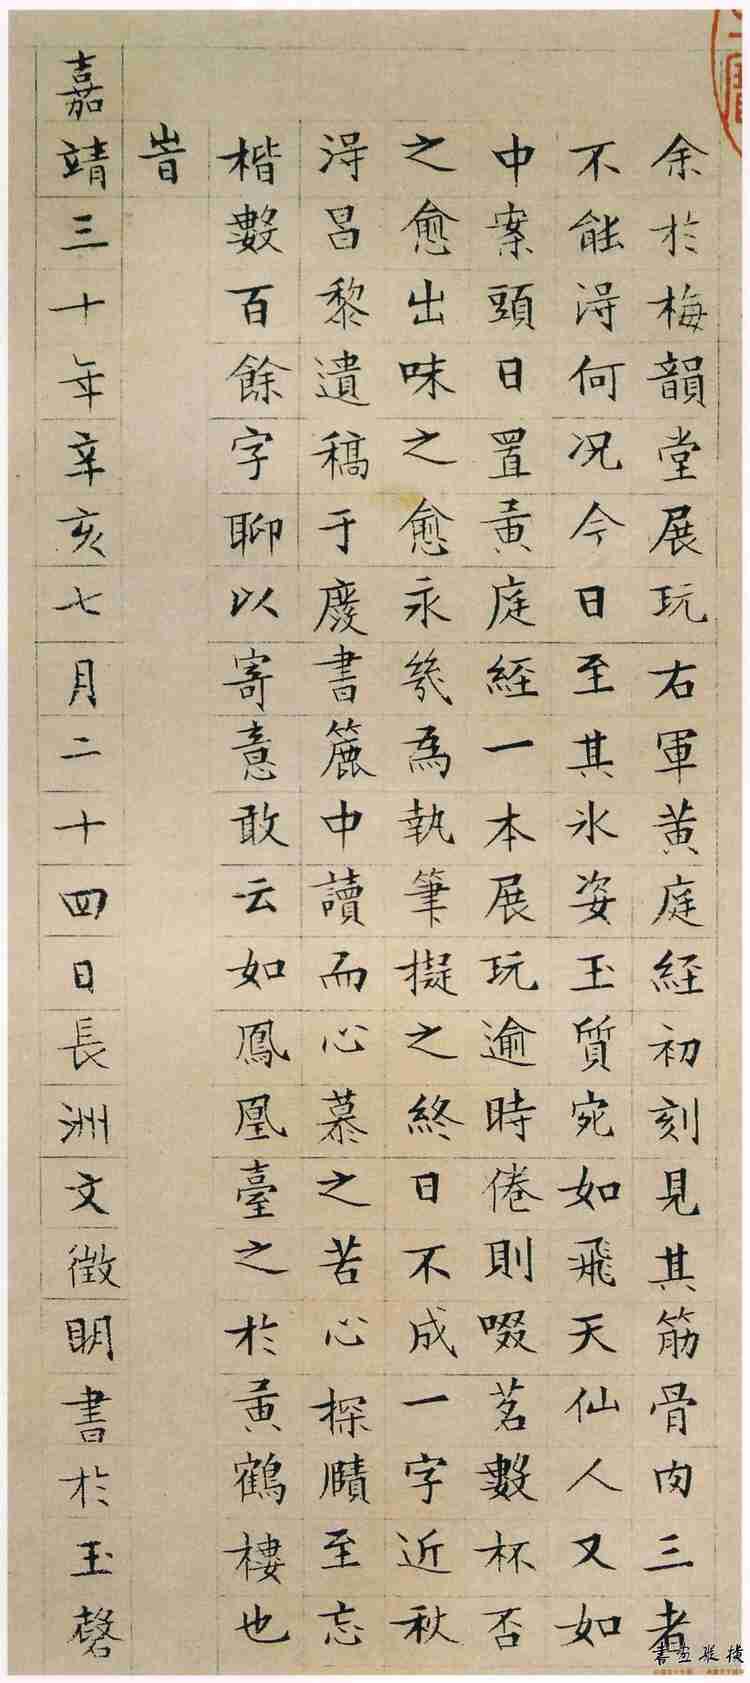 余於梅韻堂展玩右軍黄庭經初刻見其筋骨肉三者
不能淂何况今日至其氷姿玉質宛如飛天仙人又如
中案頭日置黄庭經一本展玩逾時倦則啜茗數杯否
之愈出味之愈永幾為執筆擬之終日不成一字近秋
淂昌黎遺稿于廢書簏中讀而心慕之苦心探賾至忘
楷數百餘字聊以寄意敢云如鳳凰臺之於黄鶴樓也
旹
嘉靖三十年辛亥七月二十四日長洲文徵明書於玉磬